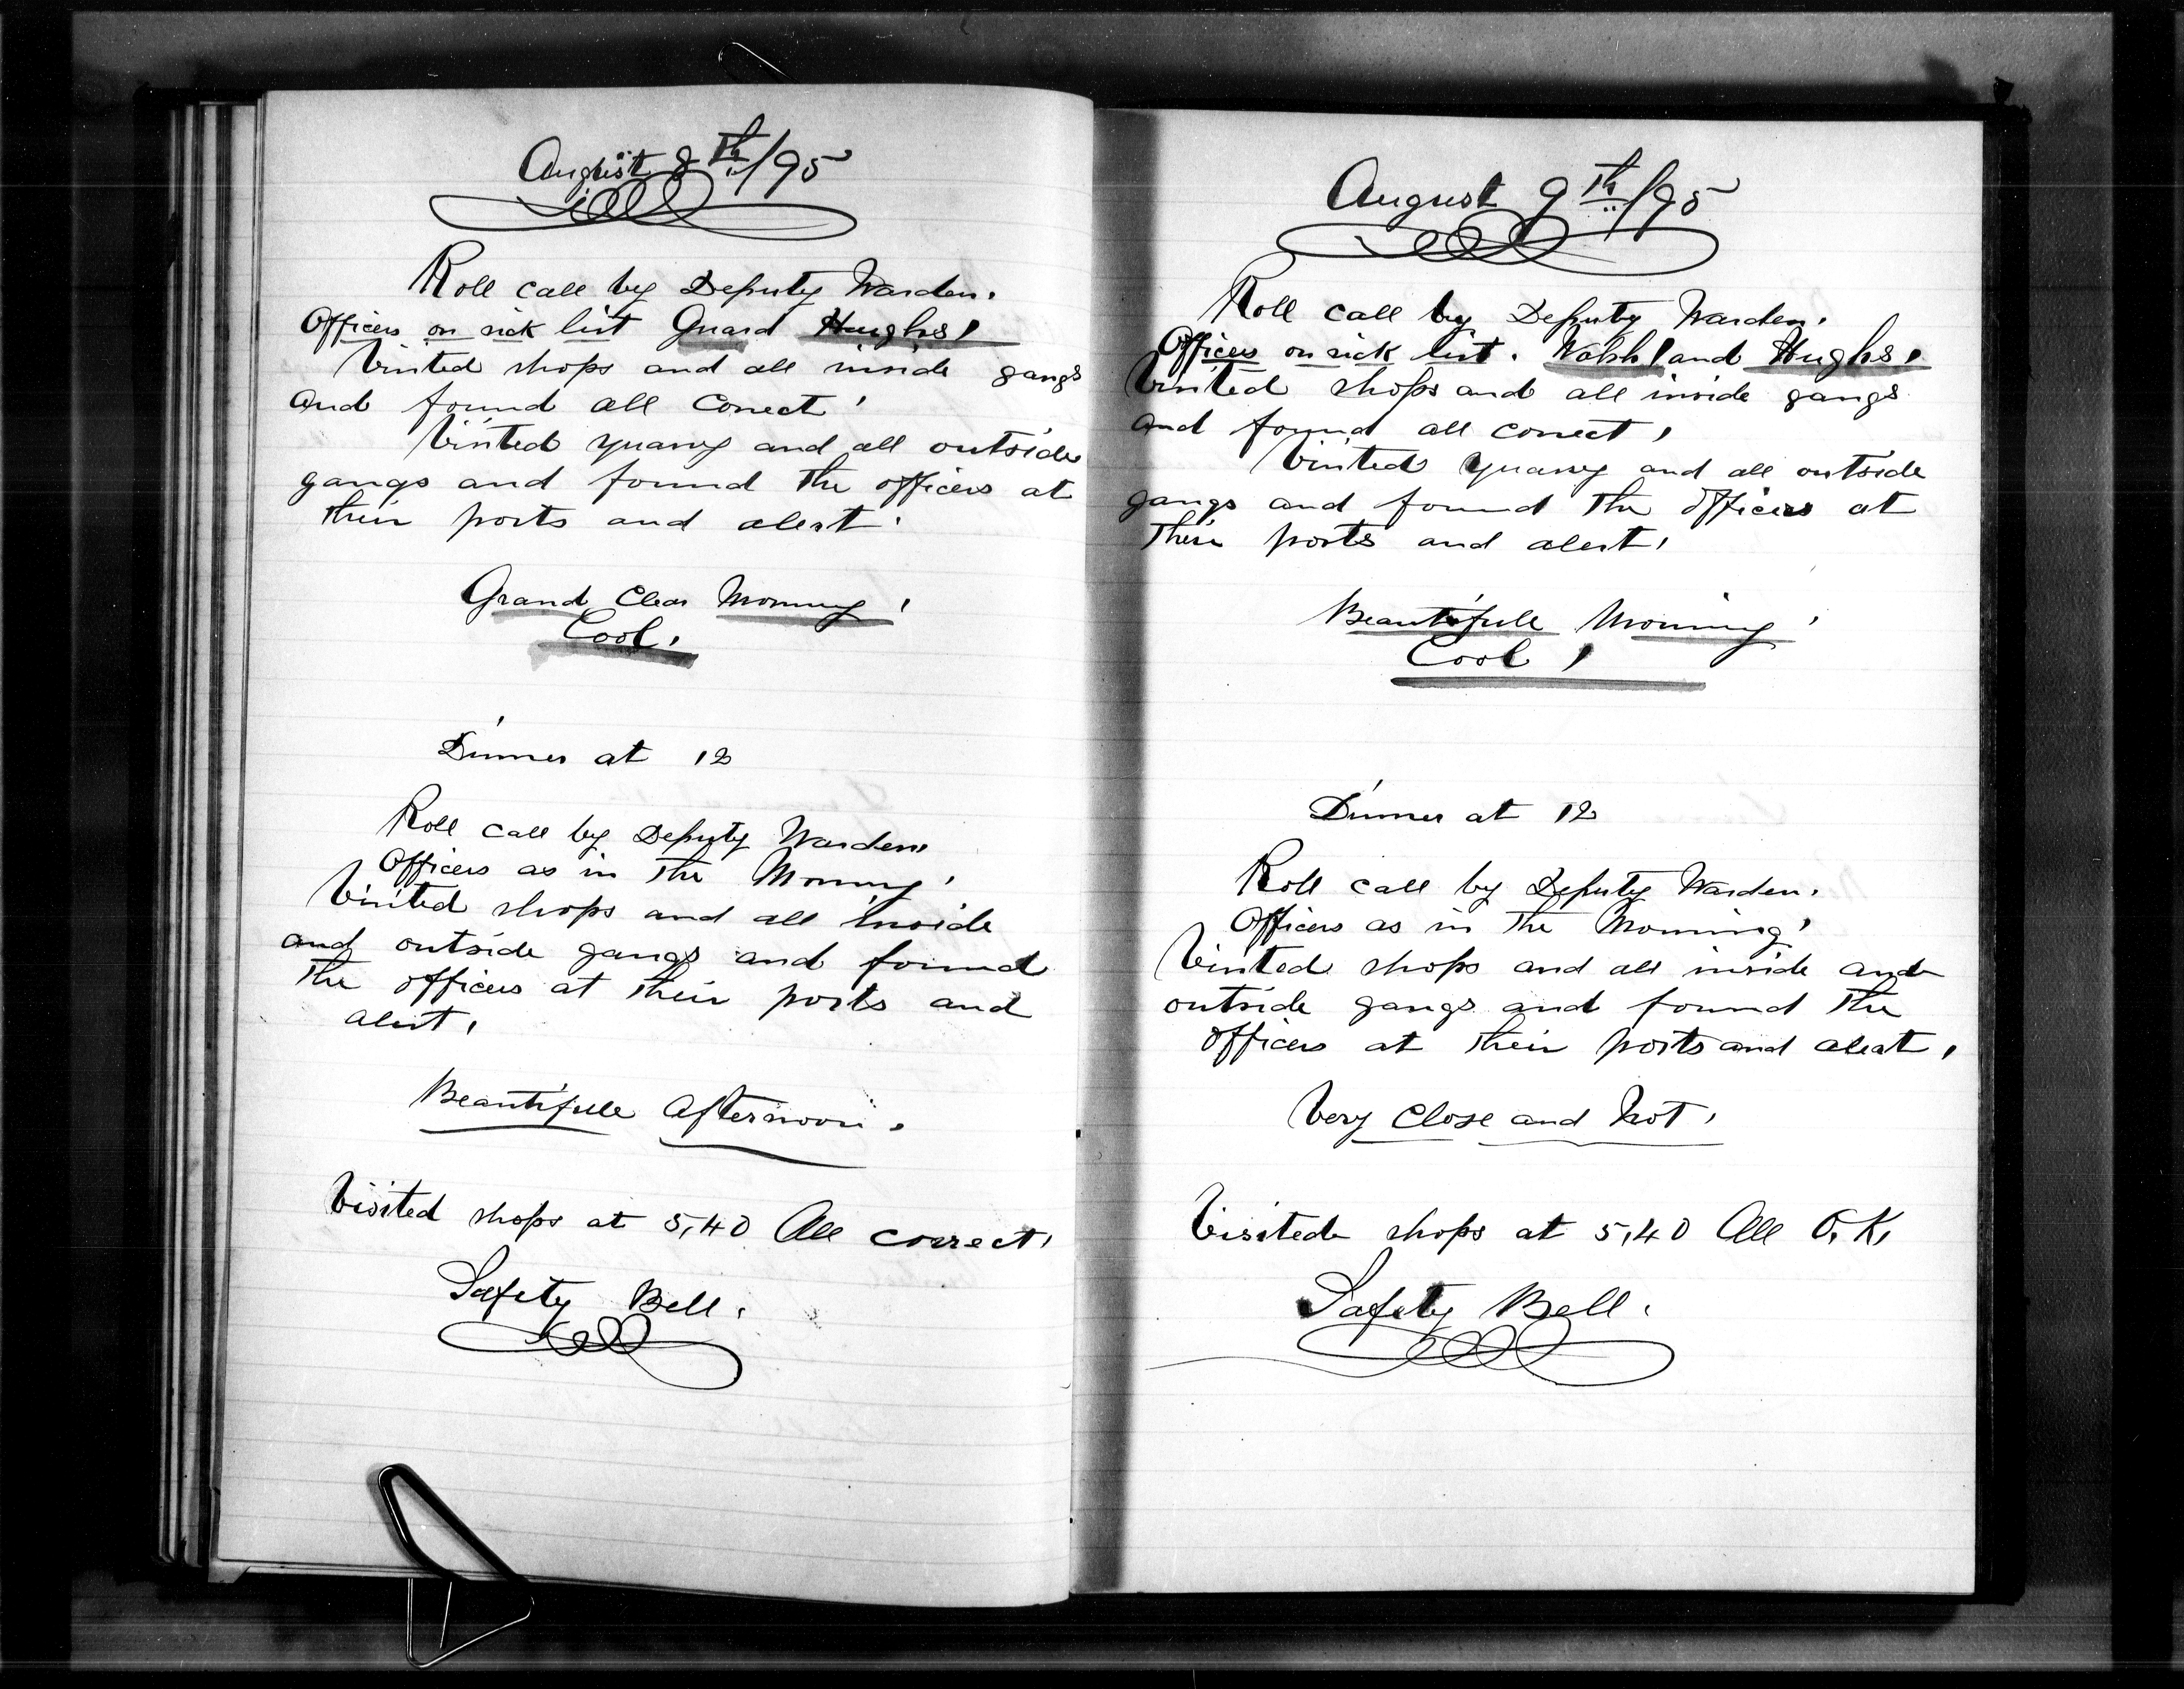 August 8th/95
Roll call by Deputy Warden.
Officers on sick list Guard Hughs,
Visited shops and all inside gangs
and found all correct.
Visited quarry and all outside
gangs and found the officers at
their posts and alert.
Grand Clear Morning,
Cool.
Dinner at 12
Roll call by Deputy Warden,
Officers as in the Morning,
Visited shops and all inside
and outside gangs and found
the officers at their posts and
alert,
Beautifull afternoon.
Visited shops at 5,40 All correct,
Safety Bell.
August 9th/95
Roll call by Deputy Warden.
Officers on sick list. Walsh, and Hughs,
Visited shops and all inside gangs
and found all correct,
Visited quarry and all outside
gangs and found the officers at
their posts and alert,
Beautifull Morning,
Cool,
Dinner at 12
Roll call by Deputy Warden.
Officers as in the Morning,
Visited shops and all inside and
outside gangs and found the
officers at their posts and alert,
Very Close and hot,
Visited shops at 5,40 All O.K,
Safety Bell.